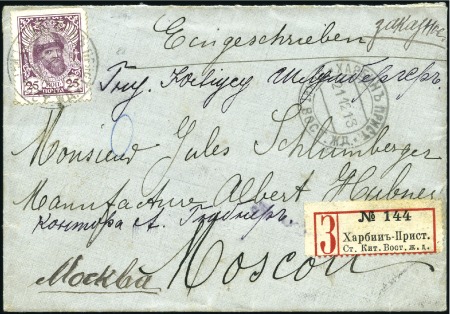 25 25
Eingeschrieben
заказное
Гну. Юлiусу Шлумбергеръ.
Monsieur Jules Schlumberger
Manufacture Albert Hubner
контора А. Гюбнеръ.
Москва Moscou
ХАРБИНЪ ПРИСТ.
З № 144
Харбинъ-Прист.
Ст. Кит. Вост. ж. д.